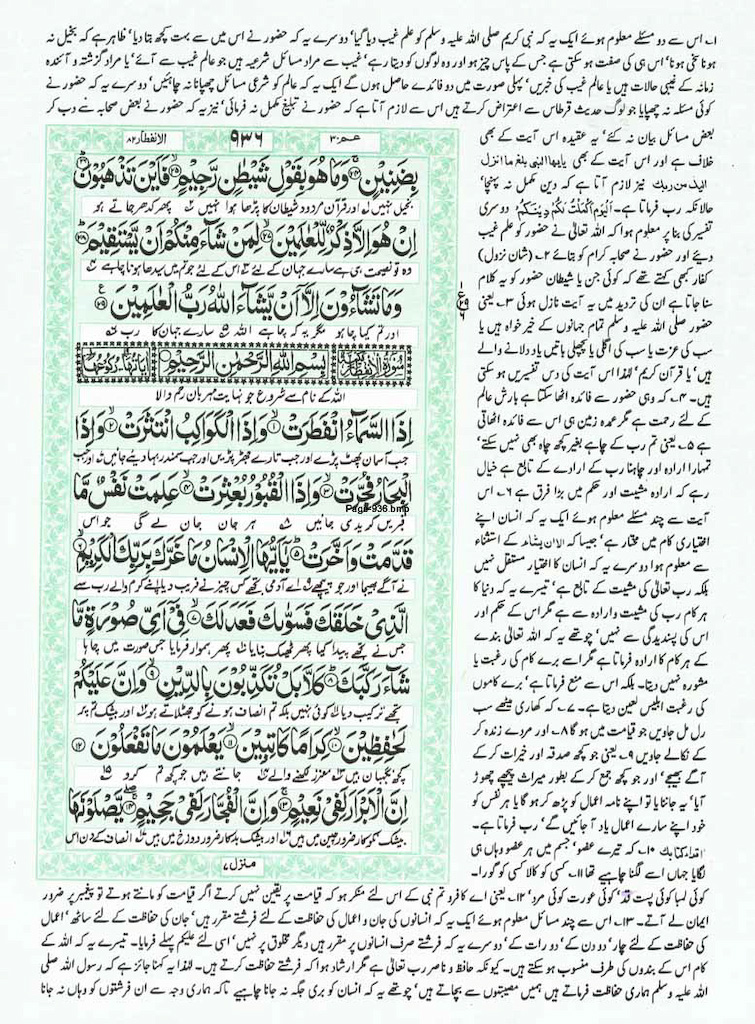 ۱۔ اس سے دو مسئلے معلوم ہوئے ایک یہ کہ نبی کریم صلی اللہ علیہ وسلم کو علم غیب دیا گیا' دوسرے یہ کہ حضور نے اس میں سے بہت کچھ بتا دیا' ظاہر ہے کہ بخیل نہ
ہونا سخی ہونا' اس ہی کی صفت ہو سکتی ہے جس کے پاس چیز ہو اور وہ لوگوں کو دیتا رہے' غیب سے مراد مسائل شرعیہ ہیں جو عالم غیب سے آئے' یا مراد گزشتہ و آئندہ
زمانہ کے غیبی حالات ہیں یا عالم غیب کی خبریں' پہلی صورت میں دو فائدے حاصل ہوں گے ایک یہ کہ عالم کو شرعی مسائل چھپانا نہ چاہئیں' دوسرے یہ کہ حضور نے
کوئی مسئلہ نہ چھپایا جو لوگ حدیث قرطاس سے اعتراض کرتے ہیں اس سے لازم آتا ہے کہ حضور نے تبلیغ مکمل نہ فرمائی' نیز یہ کہ حضور نے بعض صحابہ سے دب کر
عم ۳۰
۹۳۶
الانفطار ۸۲
بِضَنِيْنٍ ۚ وَمَا هُوَ بِقَوْلِ شَيْطٰنٍ رَّجِيْمٍ ۙ فَاَيْنَ تَذْهَبُوْنَ ؕ
بخیل نہیں اور قرآن مردود شیطان کا پڑھا ہوا نہیں پھر کدھر جاتے ہو
اِنْ هُوَ اِلَّا ذِكْرٌ لِّلْعٰلَمِيْنَ ۙ لِمَنْ شَآءَ مِنْكُمْ اَنْ يَّسْتَقِيْمَ ؕ
وہ تو نصیحت ہی ہے سارے جہان کے لئے اس کے لئے جو تم میں سیدھا ہونا چاہے
وَمَا تَشَآءُوْنَ اِلَّاۤ اَنْ يَّشَآءَ اللّٰهُ رَبُّ الْعٰلَمِيْنَ
اور تم کیا چاہو مگر یہ کہ چاہے اللہ سارے جہان کا رب
بِسْمِ اللّٰهِ الرَّحْمٰنِ الرَّحِيْمِ
اللہ کے نام سے شروع جو نہایت مہربان رحم والا
اِذَا السَّمَآءُ انْفَطَرَتْ ۙ وَاِذَا الْكَوَاكِبُ انْتَثَرَتْ ۙ وَاِذَا
جب آسمان پھٹ پڑے اور جب تارے جھڑ پڑیں اور جب سمندر بہا دیئے جائیں اور جب
الْبِحَارُ فُجِّرَتْ ۙ وَاِذَا الْقُبُوْرُ بُعْثِرَتْ ۙ عَلِمَتْ نَفْسٌ مَّا
Page-936.bmp
قبریں کریدی جائیں ہر جان جان لے گی جو اس
قَدَّمَتْ وَاَخَّرَتْ ؕ يٰۤاَيُّهَا الْاِنْسَانُ مَا غَرَّكَ بِرَبِّكَ الْكَرِيْمِ ۙ
نے آگے بھیجا اور جو پیچھے اے آدمی تجھے کس چیز نے فریب دیا اپنے کرم والے رب سے
الَّذِيْ خَلَقَكَ فَسَوّٰىكَ فَعَدَلَكَ ۙ فِيْۤ اَيِّ صُوْرَةٍ مَّا
جس نے تجھے پیدا کیا پھر ٹھیک بنایا پھر ہموار فرمایا جس صورت میں چاہا
شَآءَ رَكَّبَكَ ؕ كَلَّا بَلْ تُكَذِّبُوْنَ بِالدِّيْنِ ۙ وَاِنَّ عَلَيْكُمْ
تجھے ترکیب دیا کوئی نہیں بلکہ تم انصاف ہونے کو جھٹلاتے ہو اور بیشک تم پر
لَحٰفِظِيْنَ ۙ كِرَامًا كَاتِبِيْنَ ۙ يَعْلَمُوْنَ مَا تَفْعَلُوْنَ
کچھ نگہبان ہیں معزز لکھنے والے جانتے ہیں جو کچھ تم کرو
اِنَّ الْاَبْرَارَ لَفِيْ نَعِيْمٍ ۚ وَاِنَّ الْفُجَّارَ لَفِيْ جَحِيْمٍ ۚ يَّصْلَوْنَهَا
بیشک نکوکار ضرور چین میں ہیں اور بیشک بدکار ضرور دوزخ میں ہیں انصاف کے دن اس
منزل ۷
بعض مسائل بیان نہ کئے' یہ عقیدہ اس آیت کے بھی
خلاف ہے اور اس آیت کے بھی يايها النبى بلغ ما انزل
اليك من ربك نیز لازم آتا ہے کہ دین مکمل نہ پہنچا'
حالانکہ رب فرماتا ہے۔ اَلْيَوْمَ اَكْمَلْتُ لَكُمْ دِيْنَكُمْ دوسری
تفسیر کی بنا پر معلوم ہوا کہ اللہ تعالٰی نے حضور کو علم غیب
دیئے اور حضور نے صحابہ کرام کو بتائے ۲۔ (شان نزول)
کفار کبھی کہتے تھے کہ کوئی جن یا شیطان حضور کو یہ کلام
سنا جاتا ہے ان کی تردید میں یہ آیت نازل ہوئی ۳۔ یعنی
حضور صلی اللہ علیہ وسلم تمام جہانوں کے خیر خواہ ہیں یا
سب کی عزت یا سب کی اگلی یا پچھلی باتیں یاد دلانے والے
ہیں' یا قرآن کریم' لہٰذا اس آیت کی دس تفسیریں ہو سکتی
ہیں' ۴۔ کہ وہی حضور سے فائدہ اٹھا سکتا ہے بارش عالم
کے لئے رحمت ہے مگر عمدہ زمین ہی اس سے فائدہ اٹھاتی
ہے ۵۔ یعنی تم رب کے چاہے بغیر کچھ چاہ بھی نہیں سکتے'
تمہارا ارادہ اور چاہنا رب کے ارادے کے تابع ہے خیال
رہے کہ ارادہ مشیت اور حکم میں بڑا فرق ہے ۶۔ اس
آیت سے چند مسئلے معلوم ہوئے ایک یہ کہ انسان اپنے
اختیاری کام میں مختار ہے' جیسا کہ الا ان يشاء کے استثناء
سے معلوم ہوا دوسرے یہ کہ انسان کا اختیار مستقل نہیں
بلکہ رب تعالٰی کی مشیت کے تابع ہے' تیسرے یہ کہ دنیا کا
ہر کام رب کی مشیت و ارادہ سے ہے مگر اس کے حکم اور
اس کی پسندیدگی سے نہیں' چوتھے یہ کہ اللہ تعالٰی بندے
کے ہر کام کا ارادہ فرماتا ہے مگر اسے برے کام کی رغبت یا
مشورہ نہیں دیتا۔ بلکہ اس سے منع فرماتا ہے' برے کاموں
کی رغبت ابلیس لعین دیتا ہے۔ ۷۔ کہ کھاری میٹھے سب
رل مل جاویں جو قیامت میں ہو گا ۸۔ اور مردے زندہ کر
کے نکالے جاویں ۹۔ یعنی جو کچھ صدقہ اور خیرات کر کے
آگے بھیجے' اور جو کچھ جمع کر کے بطور میراث پیچھے چھوڑ
آیا' یہ جاننا یا تو اپنے نامہ اعمال کو پڑھ کر ہو گا یا ہر نفس کو
خود اپنے سارے اعمال یاد آ جائیں گے' رب فرماتا ہے۔
اقرأ كتابك ۱۰۔ کہ تیرے عضو' جسم میں ہر عضو وہاں ہی
لگایا جہاں اسے لگنا چاہیے تھا ۱۱۔ کسی کو کالا کسی کو گورا۔
کوئی لمبا کوئی پست قد' کوئی عورت کوئی مرد' ۱۲۔ یعنی اے کافرو تم نبی کے اس لئے منکر ہو کہ قیامت پر یقین نہیں کرتے اگر قیامت کو مانتے ہوتے تو پیغمبر پر ضرور
ایمان لے آتے۔ ۱۳۔ اس سے چند مسائل معلوم ہوئے ایک یہ کہ انسانوں کی جان و اعمال کی حفاظت کے لئے فرشتے مقرر ہیں' جان کی حفاظت کے لئے ساٹھ' اعمال
کی حفاظت کے لئے چار' دو دن کے' دو رات کے' دوسرے یہ کہ فرشتے صرف انسانوں پر مقرر ہیں دیگر مخلوق پر نہیں' اسی لئے علیکم پہلے فرمایا۔ تیسرے یہ کہ اللہ کے
کام اس کے بندوں کی طرف منسوب ہو سکتے ہیں۔ کیونکہ حافظ و ناصر رب تعالٰی ہے مگر ارشاد ہوا کہ فرشتے حفاظت کرتے ہیں۔ لہٰذا یہ کہنا جائز ہے کہ رسول اللہ صلی
اللہ علیہ وسلم ہماری حفاظت فرماتے ہیں ہمیں مصیبتوں سے بچاتے ہیں' چوتھے یہ کہ انسان کو بری جگہ نہ جانا چاہیے تاکہ ہماری وجہ سے ان فرشتوں کو وہاں نہ جانا